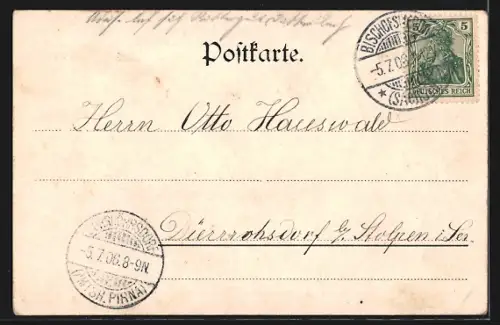 Postkarte.
BISCHOFSWERDA
-5.7.06
* (SACHSEN)
5
DEUTSCHES REICH
Herrn Otto Hauswald
Dürrröhsdorf b/ Stolpen i. Sa.
-5.7.06.8-9N.
(AMTSH. PIRNA)